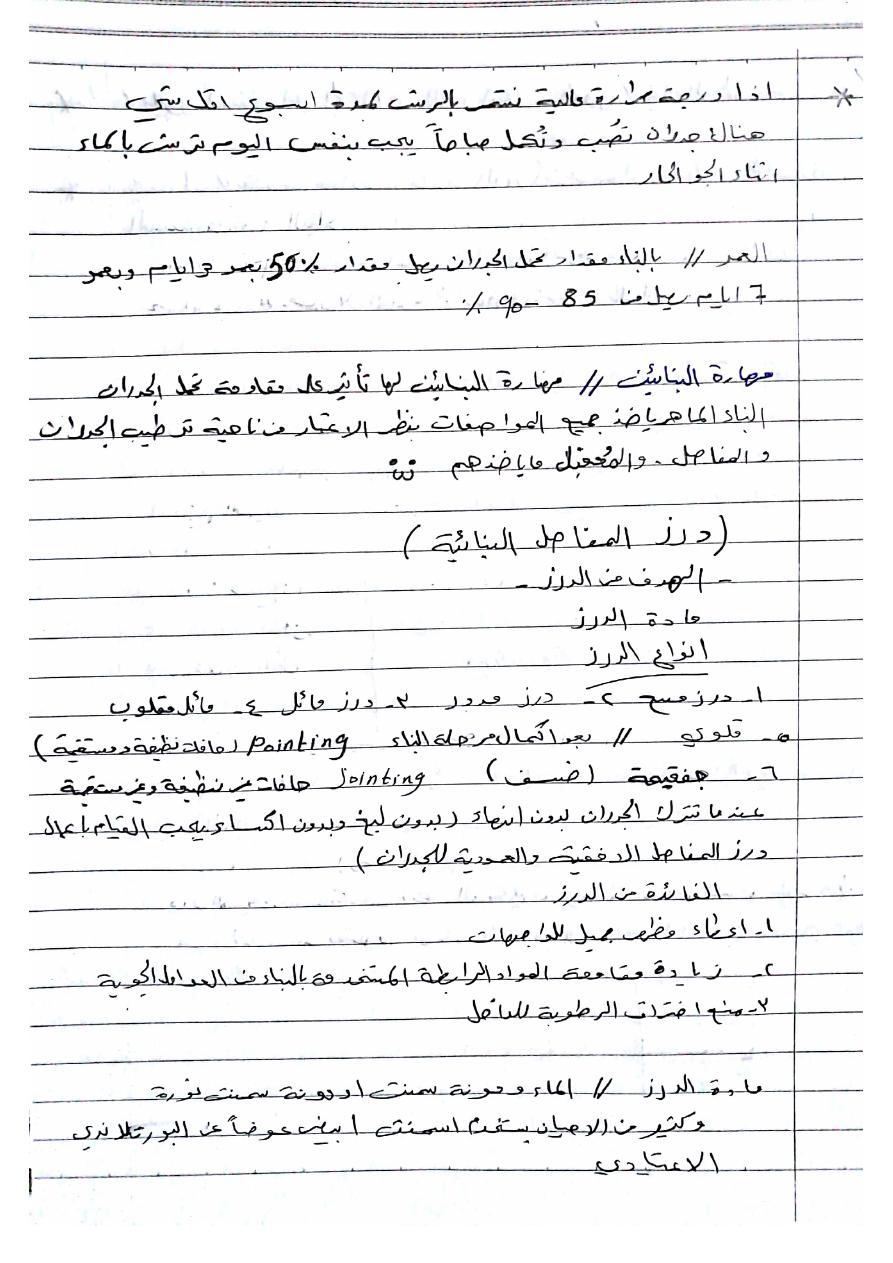 * اذا درجة حرارة عالية نستمر بالرش لمدة اسبوع اقل شي
هناك جدران تصُب وتُكمل صباحاً يجب بنفس اليوم ترش بالماء
اثناء الجو الحار
العمر // بالبناء مقدار تحمل الجدران يصل مقدار 50% بعد 3 ايام وبعد
7 ايام يصل من 85 - 90 %
مهارة البنائين // مهارة البنائين لها تأثير على مقاومة تحمل الجدران
البناء الماهر ياخذ جميع المواصفات بنظر الاعتبار من ناحية ترطيب الجدران
والمفاصل . والمُعقبل ماياخذهم
(درز المفاصل البنائية)
- الهدف من الدرز -
مادة الدرز
انواع الدرز
١- درز مسح ٢- درز مدور ٣- درز مائل ٤- مائل مقلوب
٥- قلوي // بعد اكمال مرحلة البناء Pointing (حافات نظيفة ومستقيمة)
٦- جفقيمة (ضعيف) Jointing حافات غير نظيفة وغير مستقيمة
عندما تترك الجدران بدون انهاء (بدون لبخ وبدون اكساء يجب القيام باعمال
درز المفاصل الافقية والعمودية للجدران)
الفائدة من الدرز
١- اعطاء مظهر جميل للواجهات
٢- زيادة مقاومة المواد الرابطة المستخدمة بالبناء من العوامل الجوية
٣- منع اختراق الرطوبة للداخل
مادة الدرز // الماء ومونة سمنت او مونة سمنت نورة
وكثير من الاحيان يستخدم اسمنت ابيض عوضاً عن البورتلاندي
الاعتيادي